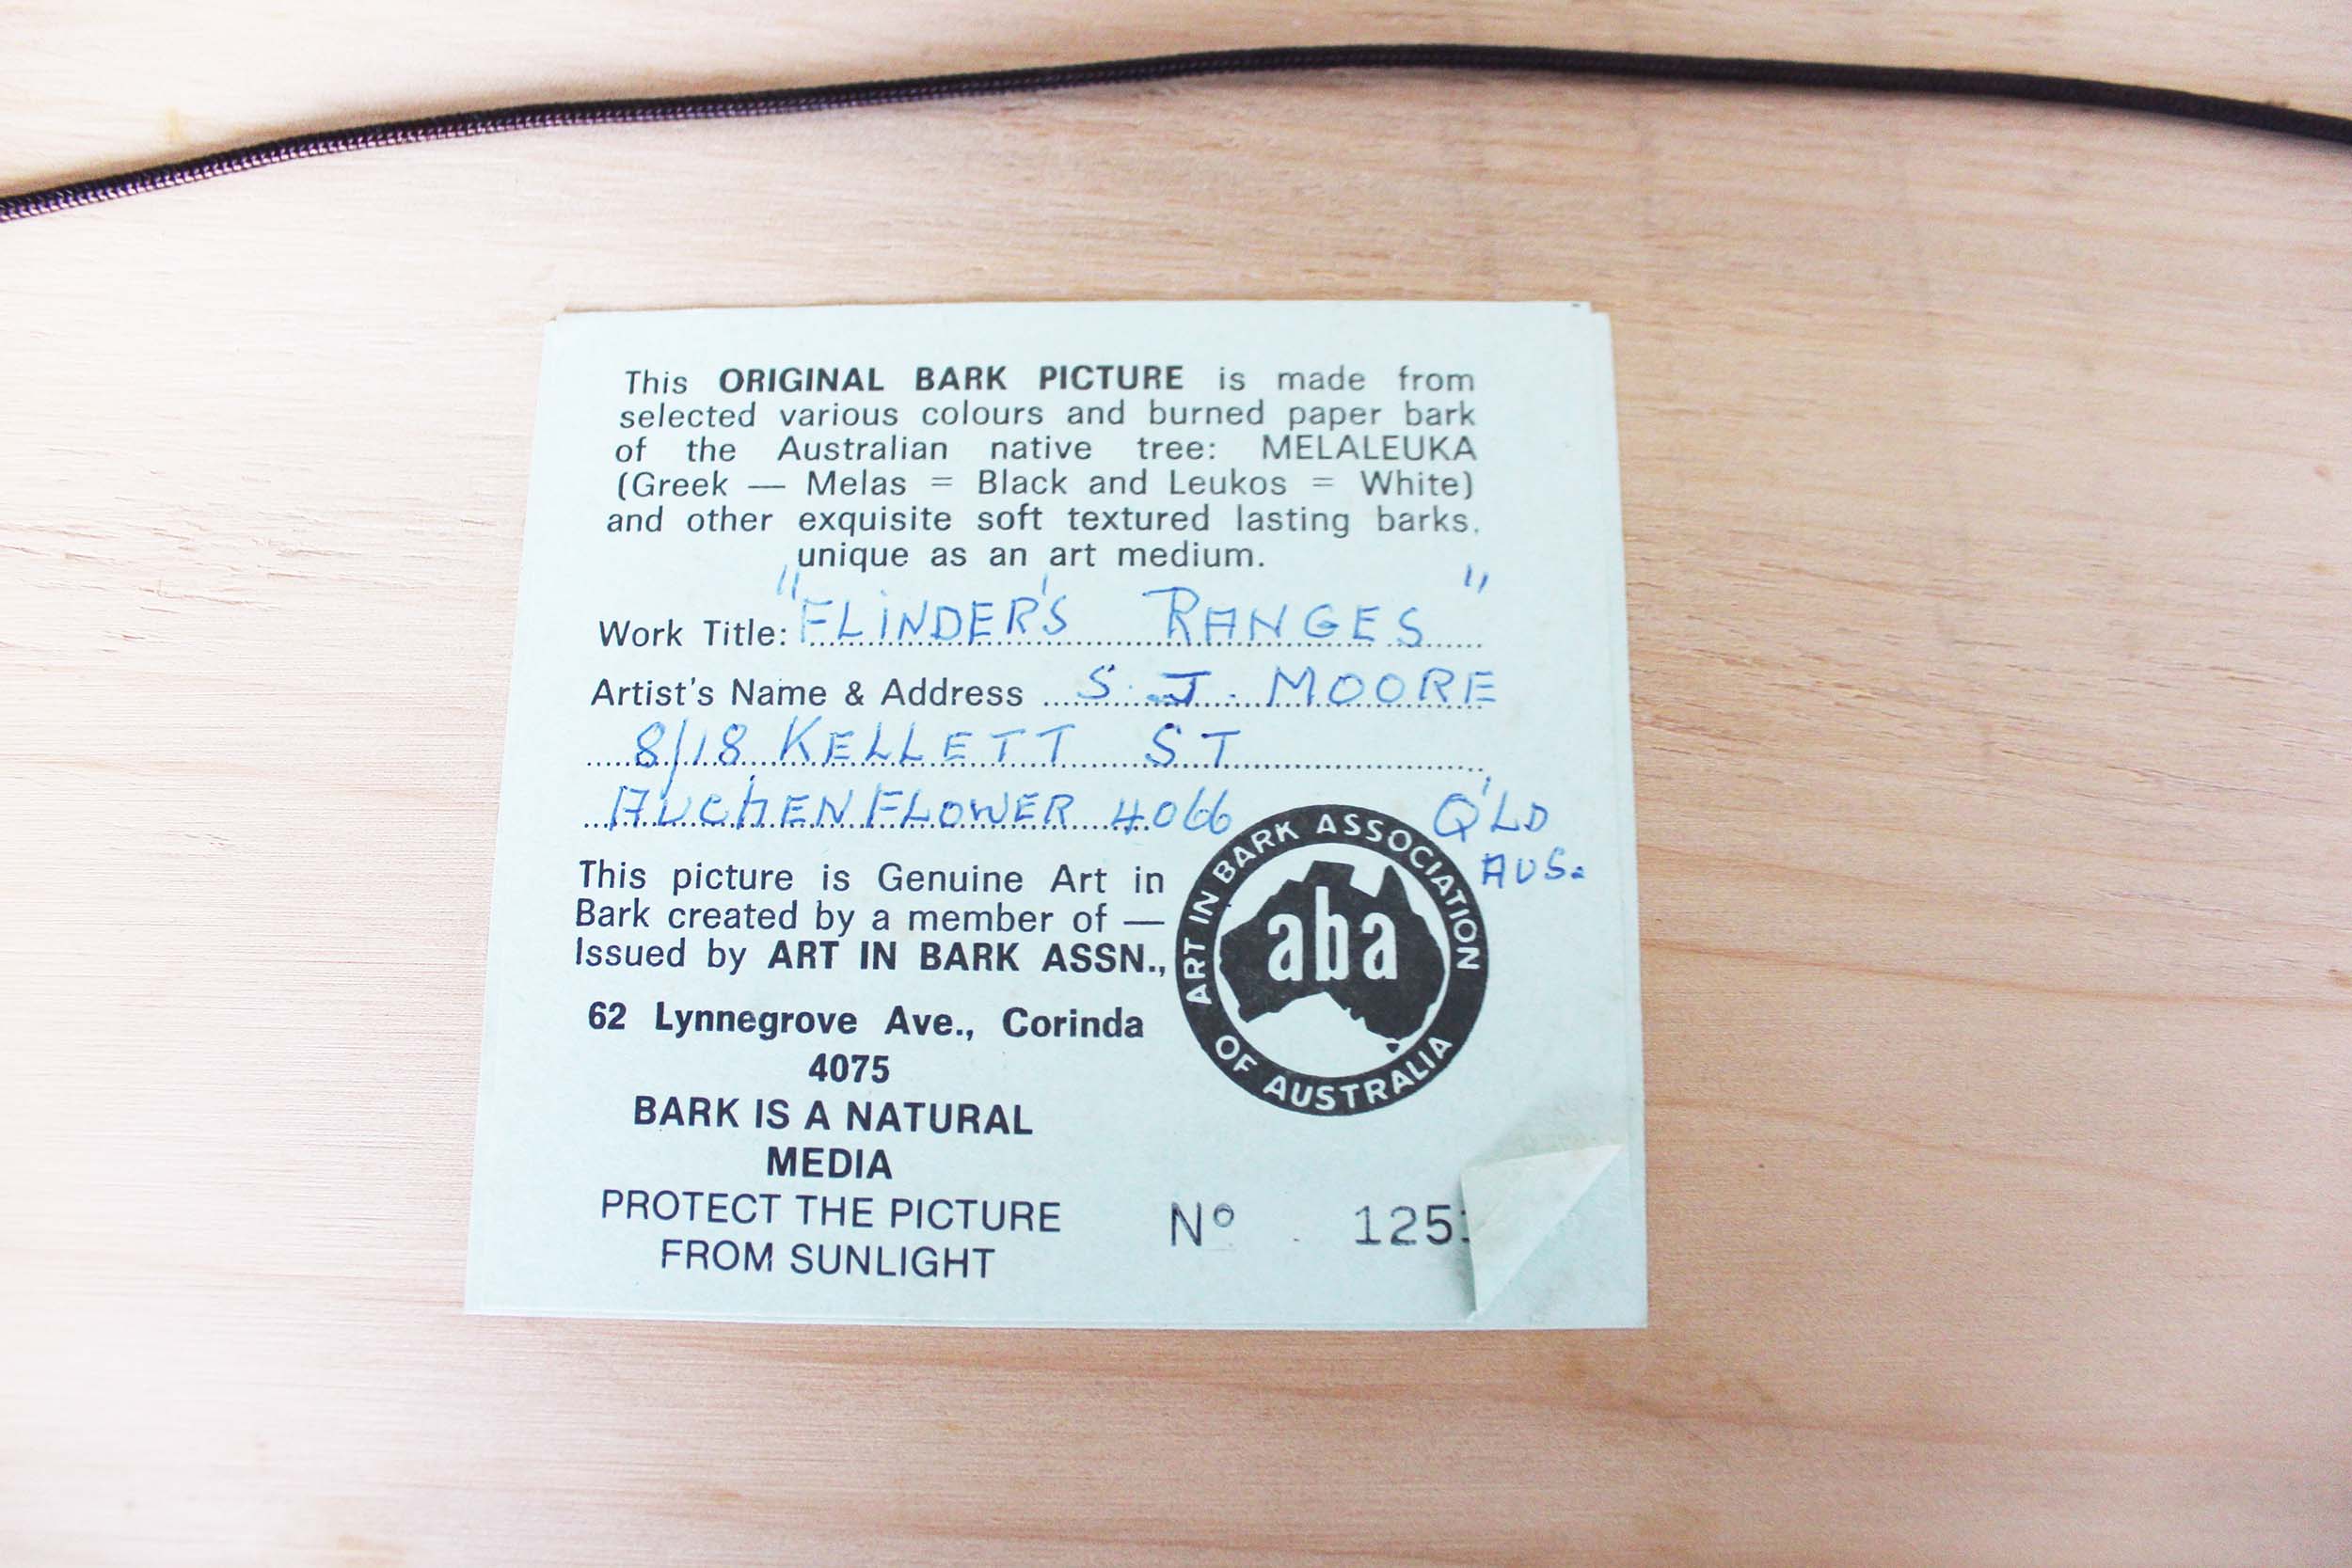 This ORIGINAL BARK PICTURE is made from
selected various colours and burned paper bark
of the Australian native tree: MELALEUKA
(Greek — Melas = Black and Leukos = White)
and other exquisite soft textured lasting barks,
unique as an art medium.
Work Title: "FLINDER'S RANGES"
Artist's Name & Address S. J. MOORE
8/18 KELLETT ST
AUCHENFLOWER 4066 Q'LD
AUS.
This picture is Genuine Art in
Bark created by a member of —
Issued by ART IN BARK ASSN.,
62 Lynnegrove Ave., Corinda
4075
BARK IS A NATURAL
MEDIA
PROTECT THE PICTURE
FROM SUNLIGHT
ART IN BARK ASSOCIATION
OF AUSTRALIA
aba
Nº 125